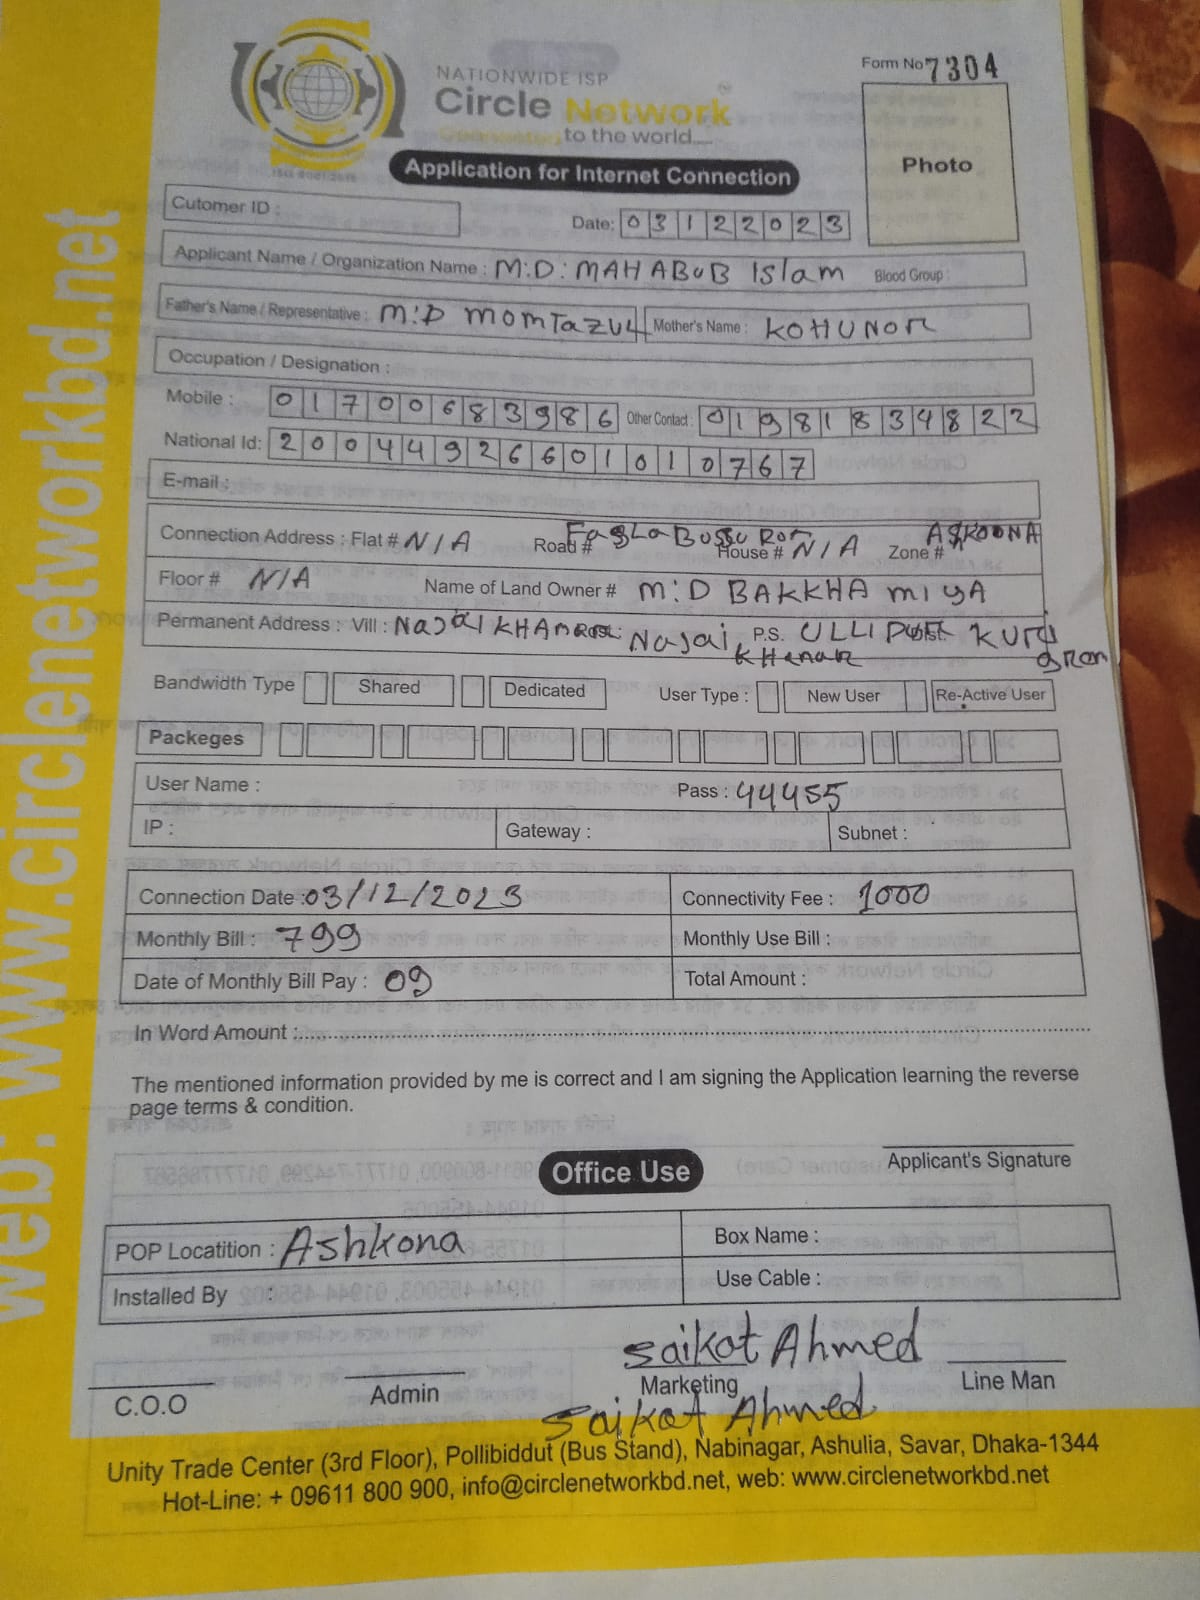 NATIONWIDE ISP
Circle Network
to the world....
Form No 7304
Photo
Application for Internet Connection
Cutomer ID :
Date: 03122023
Applicant Name / Organization Name : M:D: MAHABUB Islam Blood Group :
Father's Name / Representative : M:D MOMTAZUL Mother's Name : KOHUNOR
Occupation / Designation :
Mobile : 01700683986 Other Contact : 01981834822
National Id: 20044926601010767
E-mail :
Connection Address : Flat # N/A Road # House # N/A Zone # ASKOONA
Floor # N/A Name of Land Owner # M:D BAKKHA MIYA
Permanent Address : Vill : Najai KHAMAR Najai KHamar P.S. ULLIPUR KURI gRam
Bandwidth Type Shared Dedicated User Type : New User Re-Active User
Packeges
User Name : Pass : 44455
IP : Gateway : Subnet :
Connection Date : 03/12/2023 Connectivity Fee : 1000
Monthly Bill : 799 Monthly Use Bill :
Date of Monthly Bill Pay : 09 Total Amount :
In Word Amount :
The mentioned information provided by me is correct and I am signing the Application learning the reverse
page terms & condition.
Applicant's Signature
Office Use
POP Locatition : Ashkona Box Name :
Installed By : Use Cable :
Saikot Ahmed
C.O.O Admin Marketing Line Man
Saikat Ahmed
Unity Trade Center (3rd Floor), Pollibiddut (Bus Stand), Nabinagar, Ashulia, Savar, Dhaka-1344
Hot-Line: + 09611 800 900, info@circlenetworkbd.net, web: www.circlenetworkbd.net
web: www.circlenetworkbd.net